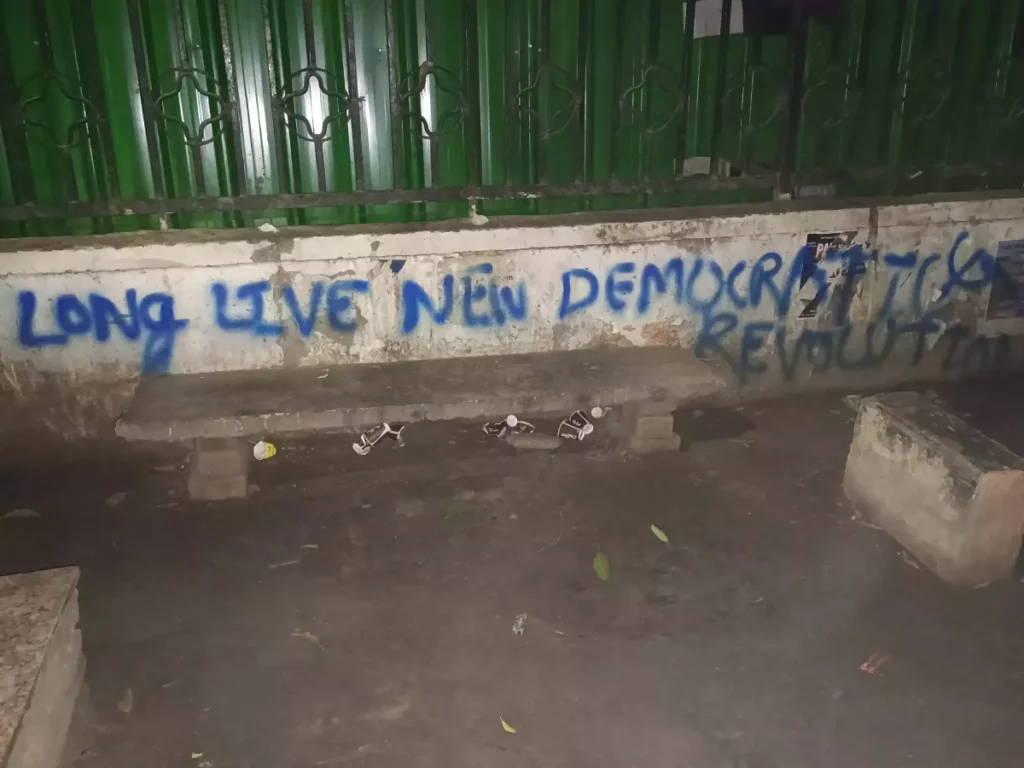 LONG LIVE NEW DEMOCRATIC
REVOLUTION